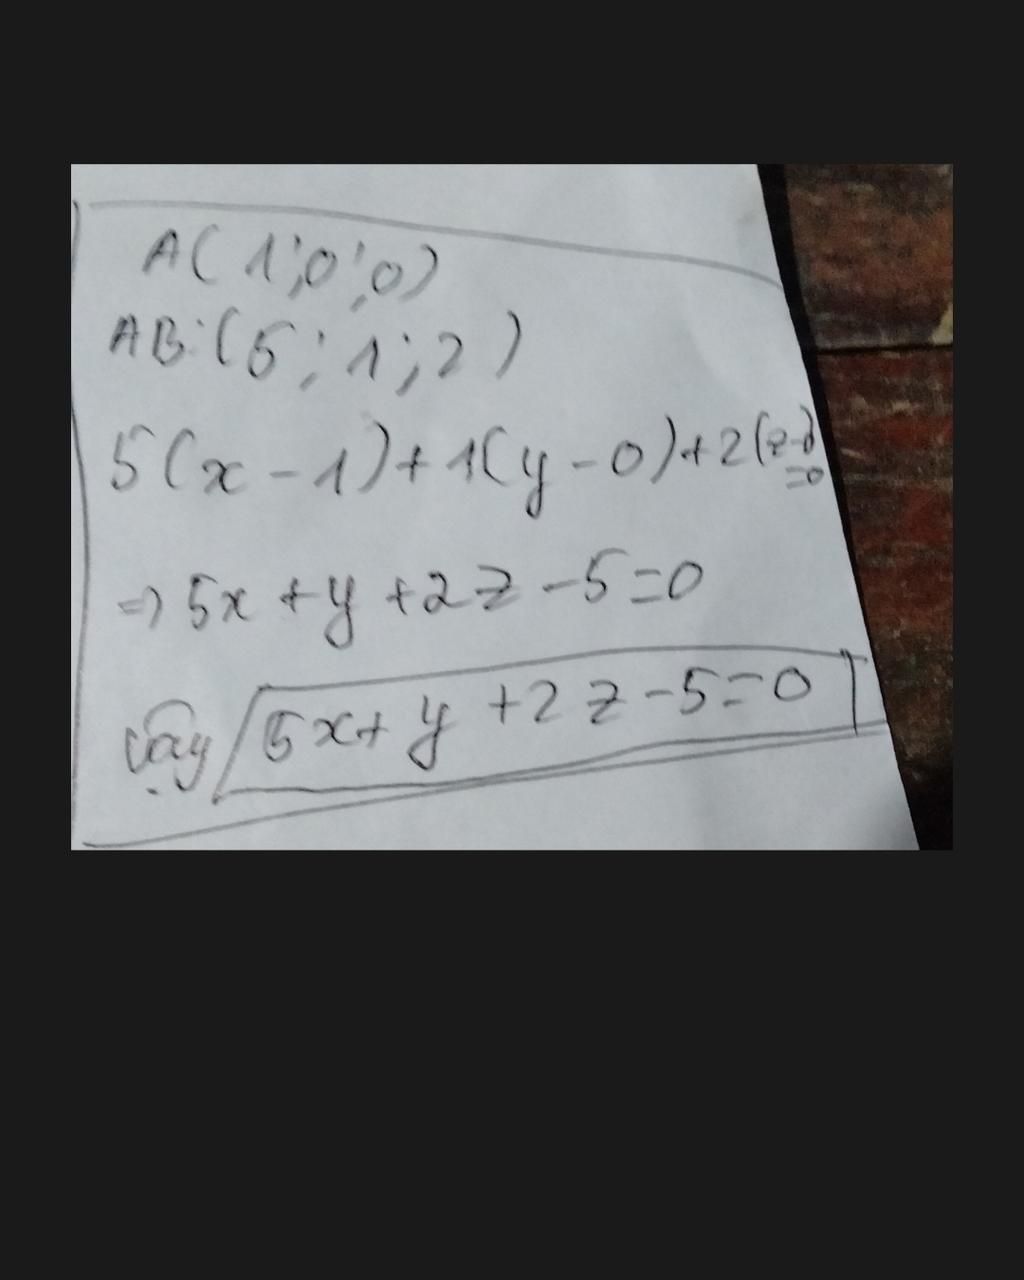 A(1;0;0)
AB:(5;1;2)
5(x-1)+1(y-0)+2(z-0)
=0
=> 5x+y+2z-5=0
Vậy 5x+y+2z-5=0